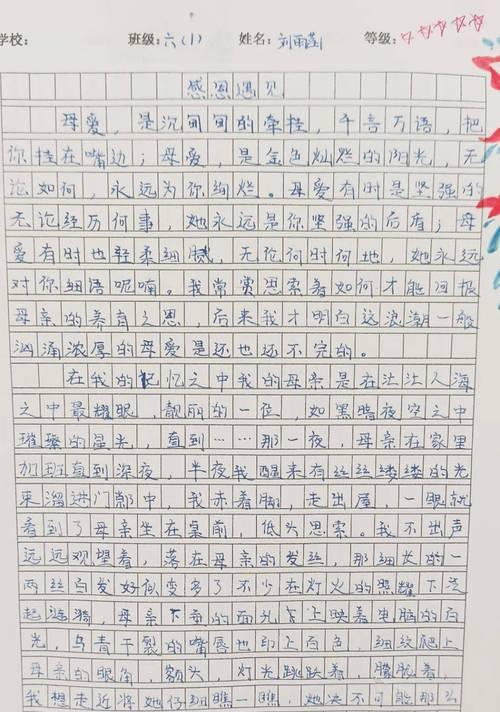 学校： 班级：六（1） 姓名：刘雨菡 等级：☆☆☆☆☆
感恩遇见
母爱，是沉甸甸的牵挂，千言万语，把
你挂在嘴边；母爱，是金色灿烂的阳光，无
论如何，永远为你绚烂。母爱有时是坚强的
无论经历何事，她永远是你坚强的后盾；母
爱有时也轻柔细腻，无论何时何地，她永远
对你细语呢喃。我常思索着如何才能回报
母亲的养育之恩，后来我才明白这浪潮一般
汹涌浓厚的母爱是还也还不完的。
在我的记忆之中我的母亲是在茫茫人海
之中最耀眼，靓丽的一位，如黑暗夜空之中
璀璨的星光，直到……那一夜，母亲在家里
加班直到深夜，半夜我醒来有丝丝缕缕的光
束溜进门那中，我赤着脚，走出屋，一眼就
看到了母亲坐在桌前，低头思索。我不出声
远远观望着，落在母亲的发丝，那细长的一
两丝乌发好似变多了不少在灯火的照耀下泛
起涟漪，母亲下垂的面孔上映着电脑的白
光，乌青干裂的嘴唇也印上白色，细纹爬上
母亲的眼角，额头，灯光跳跃着，朦胧着，
我想走近将她仔细瞧一瞧，她决不可能那么